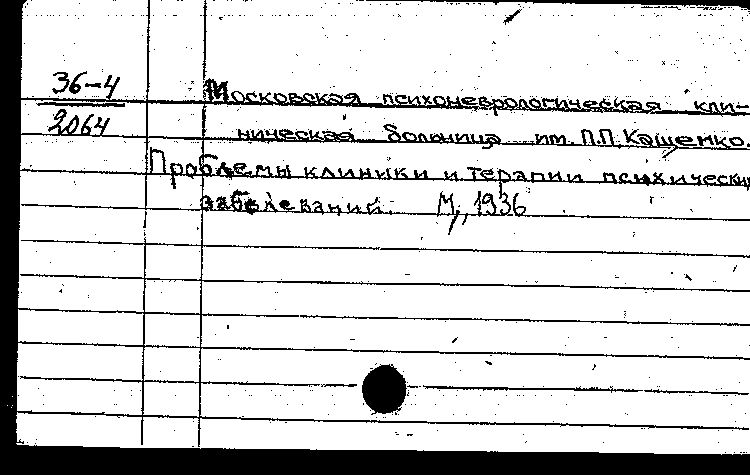 36-4
2064
Московская психоневрологическая кли-
ническая больница им. П.П. Кащенко.
Проблемы клиники и терапии психических
заболеваний. М., 1936